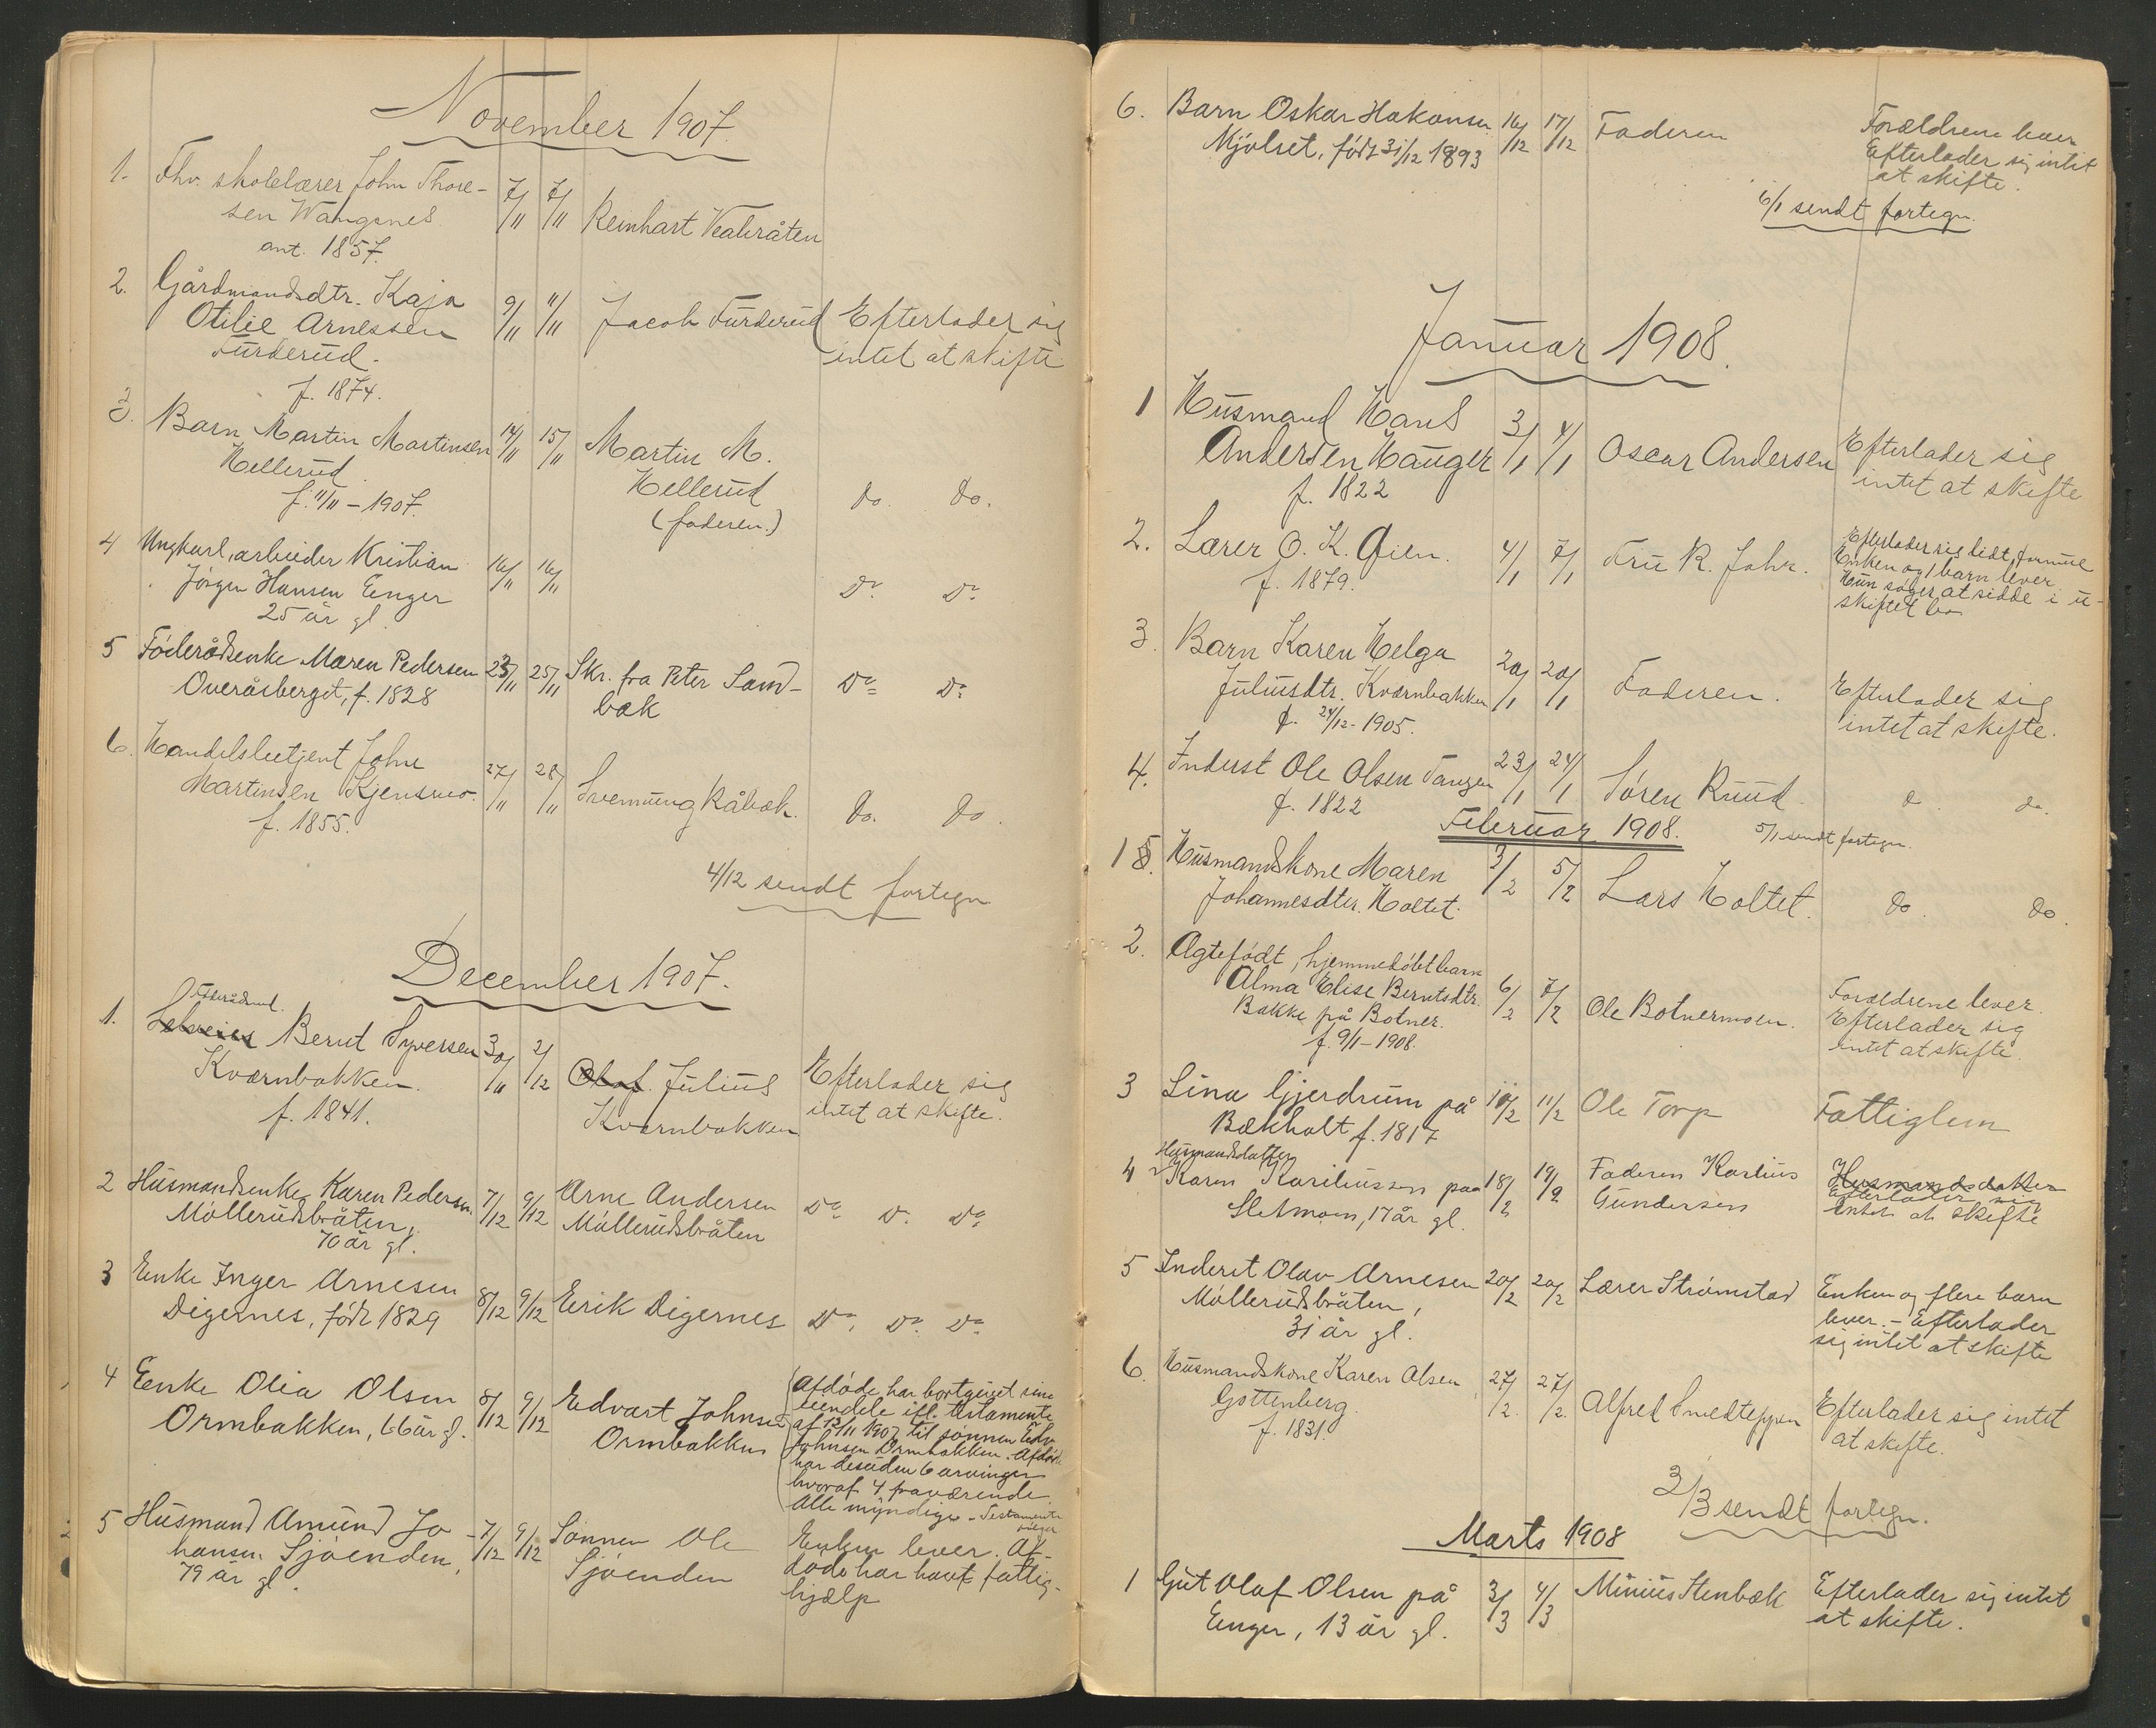 November 1907.
1. Fhv. skolelærer John Thore-
sen Wangsnes
ant. 1857.
7/11 7/11 Reinhart
2. Gårdmandsdtr. Kaja
Otilie Arnessen
Furderud.
f. 1874.
9/11 11/11 Jacob Furderud
Efterlader sig
intet at skifte
3. Barn Martin Martinsen
Hellerud
f. 11/11 - 1907.
14/11 15/11 Martin M.
Hellerud
(faderen.)
do. do.
4 Ungkarl, arbeider Kristian
Jörgen Hansen Enger
25 år gl.
16/11 16/11
Do. Do.
5 Föderådsenke Maren Pedersen
Overåsberget, f. 1828
23/11 25/11 Skr. fra Peter Sand-
bæk
Do. Do.
6. Handelsbetjent John
Martinsen Kjensmo.
f. 1855.
27/11 28/11 Svennung Råbæk.
Do. Do.
4/12 sendt fortegn
December 1907.
1. Föderådmd.
Selveier Bernt Syversen
Kværnbakken.
f. 1841.
30/11 2/12 Olaf. Julius
Kværnbakken
Efterlader sig
intet at skifte.
2 Husmandsenke Karen Pedersen.
Möllerudsbråten,
70 år gl.
7/12 9/12 Arne Andersen
Möllerudsbråten
Do. D. Do.
3 Enke Inger Arnesen
Digernes, født 1829
8/12 9/12 Erik Digernes
Do. Do. Do.
4 Enke Olia Olsen
Ormbakken, 66 år gl.
8/12 9/12 Edvart Johnsen
Ormbakken
Afdöde har bortgivet sine
eiendele ifl. testamente
af 13/11 1907 til sönnen Edv.
Johnsen Ormbakken. Afdöde
har desuden 6 arvinger
hvoraf 4 fraværende.
Alle myndige - Testamente
5 Husmand Amund Jo-
hansen Sjöenden,
79 år gl.
7/12 9/12 Sönnen Ole
Sjöenden
Enken lever. Af-
döde har havt fattig-
hjælp
6. Barn Oskar Hakonsen
Mjölset, født 31/12 1893
16/12 17/12 Faderen
Forældrene lever
Efterlader sig intet
at skifte.
6/1 sendt fortegn.
Januar 1908.
1 Husmand Hans
Andersen Hauger
f. 1822
3/1 4/1 Oscar Andersen
Efterlader sig
intet at skifte
2. Lærer O. K. Øien.
f. 1879.
4/1 7/1 Fru R. Johr.
Efterlader sig lidt formue
Enken og 1 barn lever
Hun söger at sidde i u-
skiftet bo
3. Barn Karen Helga
Juliusdtr. Kværnbakken
f. 24/12 - 1905.
20/1 20/1 Faderen.
Efterlader sig
intet at skifte.
4. Inderst Ole Olsen Tangen
f. 1822
23/1 24/1 Sören Ruud.
do. do.
Februar 1908.
5/1 sendt fortegn.
1 Husmandskone Maren
Johannesdtr. Holtet.
3/2 5/2 Lars Holtet.
do. do.
2. Ægtefödt, hjemmedöbt barn
Alma Elise Berntsdtr.
Bakke på Botner.
f. 9/1 - 1908.
6/2 7/2 Ole Botnermoen.
Forældrene lever.
Efterlader sig
intet at skifte.
3 Lina Gjerdrum på
Bækholt f. 1817
10/2 11/2 Ole Torp
Fattiglem
Husmandsdatter
4 Karen Kariliussen paa
Sletmoen, 17 år gl.
18/2 19/2 Faderen Karlius
Gundersen
Husmandsdatter
Efterlader sig
intet at skifte
5 Inderst Olav Arnesen
Möllerudsbråten,
31 år gl.
20/2 20/2 Lærer Strömstad
Enken og flere barn
lever. - Efterlader
sig intet at skifte
6. Husmandskone Karen Olsen
Gottenberg.
f. 1831.
27/2. 27/2. Alfred Smedteppen
Efterlader sig intet
at skifte.
3/3 sendt fortegn.
Marts 1908
1 Gut Olaf Olsen på
Enger, 13 år gl.
3/3 4/3 Minius Stenbæk
Efterlader sig intet
at skifte.